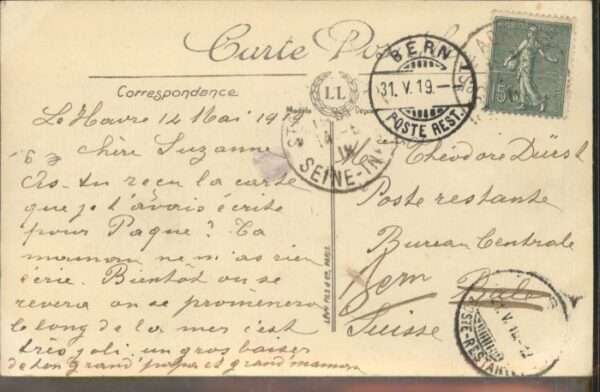 Carte Postale
Correspondance
LL
BERN
31. V. 19.
POSTE REST.
SEINE-IN
15
Le Havre 14 Mai 1919
Chère Suzanne
As-tu reçu la carte
que je t'avais écrite
pour Paque? Ta
maman ne m'as rien
écrie. Bientôt on se
revera on se promenera
le long de la mer c'est
très joli. un gros baiser
de ton grand' papa et grand maman
LÉVY FILS & Cie, PARIS
Théodore Dürst
Poste restante
Bureau Centrale
Bern
Bale
Suisse